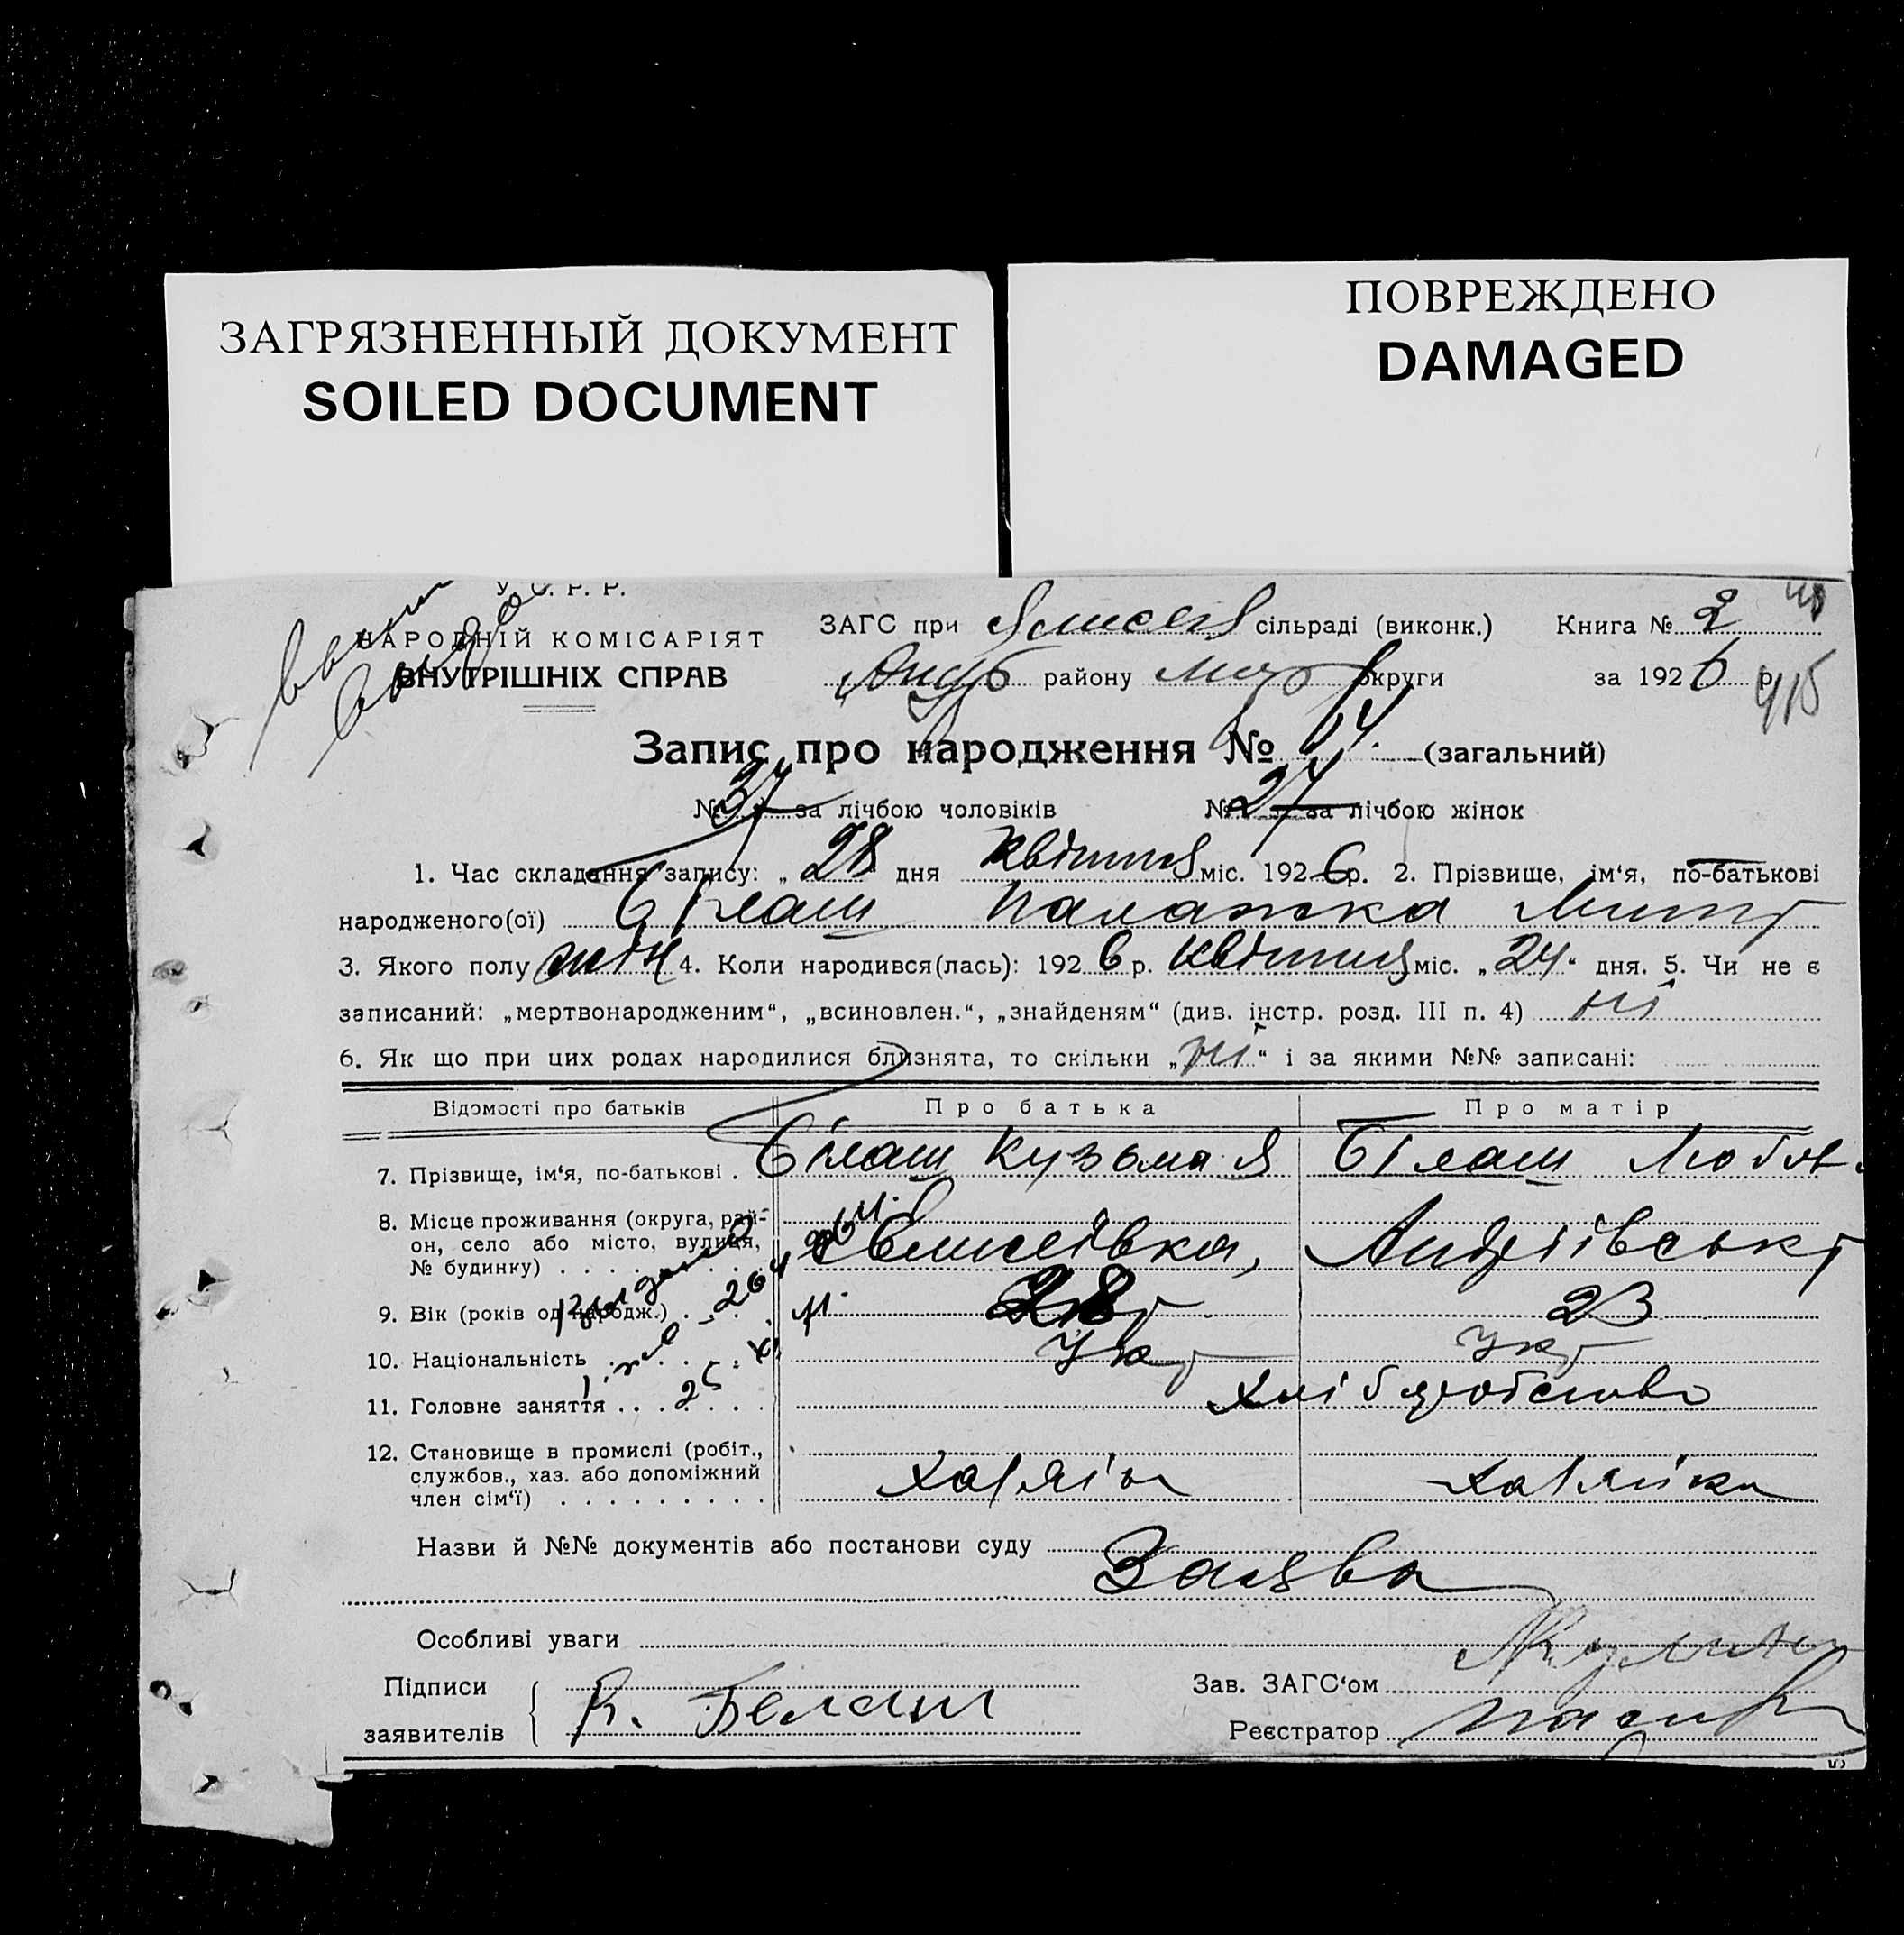 ЗАГРЯЗНЕННЫЙ ДОКУМЕНТ
SOILED DOCUMENT
ПОВРЕЖДЕНО
DAMAGED
У. С. Р. Р.
НАРОДНІЙ КОМІСАРІЯТ
ВНУТРІШНІХ СПРАВ
ЗАГС при сільраді (виконк.) Книга № 2
району округи за 1926 р. 415
Запис про народження № 64 (загальний)
№ 37 за лічбою чоловіків № 27 за лічбою жінок
1. Час складання запису: „28" дня квітня міс. 1926 р. 2. Прізвище, ім'я, по-батькові
народженого(ої) Білаш Палажка
3. Якого полу жін 4. Коли народився(лась): 1926 р. квітня міс. „24" дня. 5. Чи не є
записаний: „мертвонародженим", „всиновлен.", „знайденям" (див. інстр. розд. III п. 4) ні
6. Як що при цих родах народилися близнята, то скільки „ні" і за якими №№ записані:
Відомості про батьків Про батька Про матір
7. Прізвище, ім'я, по-батькові . Білаш Кузьма Я Білаш Любов
8. Місце проживання (округа, рай-
он, село або місто, вулиця, Єлисеївка, Андріївськ
№ будинку)
9. Вік (років од народж.) 28 23
10. Національність Укр Укр
11. Головне заняття Хліборобство
12. Становище в промислі (робіт.,
службов., хаз. або допоміжний
член сім'ї) Хазяїн Хазяйка
Назви й №№ документів або постанови суду Заява
Особливі уваги
Підписи
заявителів К. Белаш
Зав. ЗАГС'ом
Реєстратор